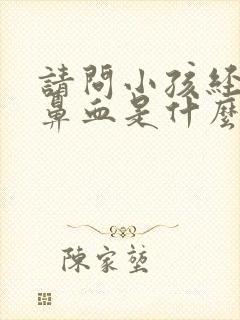 請問小孩經
鼻血是什麼
陳家塋